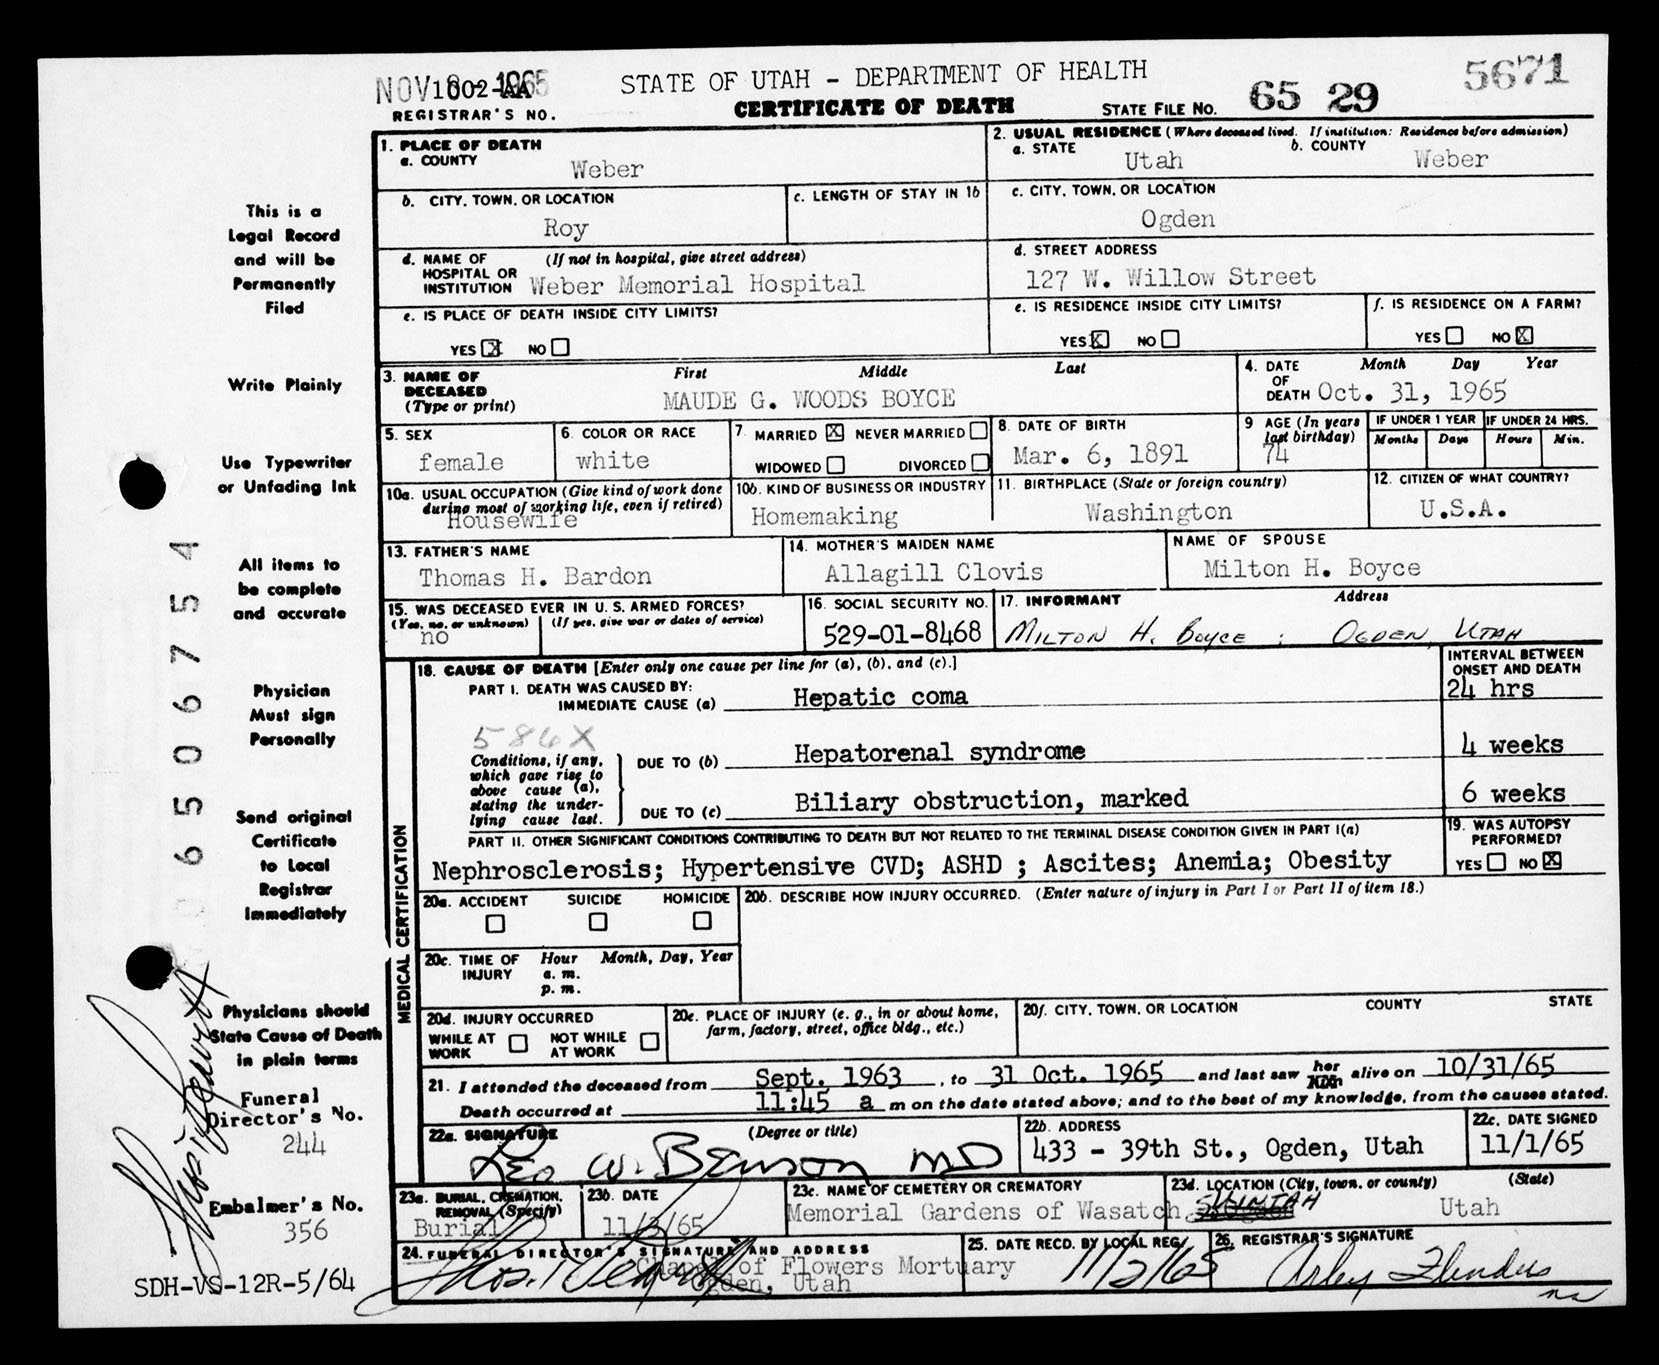 NOV 8 - 1965 1002-AA
REGISTRAR'S NO.
STATE OF UTAH - DEPARTMENT OF HEALTH
CERTIFICATE OF DEATH
STATE FILE NO. 65 29 5671
This is a
Legal Record
and will be
Permanently
Filed
Write Plainly
Use Typewriter
or Unfading Ink
All items to
be complete
and accurate
Physician
Must sign
Personally
Send original
Certificate
to Local
Registrar
immediately
Physicians should
State Cause of Death
in plain terms
Funeral
Director's No.
244
Embalmer's No.
356
SDH-VS-12R-5/64
0650 6754
1. PLACE OF DEATH
a. COUNTY
Weber
2. USUAL RESIDENCE (Where deceased lived. If institution: Residence before admission)
a. STATE Utah b. COUNTY Weber
b. CITY, TOWN, OR LOCATION
Roy
c. LENGTH OF STAY IN 1b
c. CITY, TOWN, OR LOCATION
Ogden
d. NAME OF HOSPITAL OR INSTITUTION (If not in hospital, give street address)
Weber Memorial Hospital
d. STREET ADDRESS
127 W. Willow Street
e. IS PLACE OF DEATH INSIDE CITY LIMITS?
YES X NO
e. IS RESIDENCE INSIDE CITY LIMITS?
YES X NO
f. IS RESIDENCE ON A FARM?
YES NO X
3. NAME OF DECEASED (Type or print) First Middle Last
MAUDE G. WOODS BOYCE
4. DATE OF DEATH Month Day Year
Oct. 31, 1965
5. SEX
female
6. COLOR OR RACE
white
7. MARRIED X NEVER MARRIED
WIDOWED DIVORCED
8. DATE OF BIRTH
Mar. 6, 1891
9 AGE (In years last birthday)
74
IF UNDER 1 YEAR IF UNDER 24 HRS.
Months Days Hours Min.
10a. USUAL OCCUPATION (Give kind of work done during most of working life, even if retired)
Housewife
10b. KIND OF BUSINESS OR INDUSTRY
Homemaking
11. BIRTHPLACE (State or foreign country)
Washington
12. CITIZEN OF WHAT COUNTRY?
U.S.A.
13. FATHER'S NAME
Thomas H. Bardon
14. MOTHER'S MAIDEN NAME
Allagill Clovis
NAME OF SPOUSE
Milton H. Boyce
15. WAS DECEASED EVER IN U. S. ARMED FORCES?
(Yes, no, or unknown) (If yes, give war or dates of service)
no
16. SOCIAL SECURITY NO.
529-01-8468
17. INFORMANT Address
MILTON H. BOYCE ; OGDEN, UTAH
MEDICAL CERTIFICATION
18. CAUSE OF DEATH [Enter only one cause per line for (a), (b), and (c).]
INTERVAL BETWEEN ONSET AND DEATH
PART I. DEATH WAS CAUSED BY:
IMMEDIATE CAUSE (a) Hepatic coma 24 hrs
586X
Conditions, if any,
which gave rise to
above cause (a),
stating the under-
lying cause last.
DUE TO (b) Hepatorenal syndrome 4 weeks
DUE TO (c) Biliary obstruction, marked 6 weeks
PART II. OTHER SIGNIFICANT CONDITIONS CONTRIBUTING TO DEATH BUT NOT RELATED TO THE TERMINAL DISEASE CONDITION GIVEN IN PART I(a)
Nephrosclerosis; Hypertensive CVD; ASHD ; Ascites; Anemia; Obesity
19. WAS AUTOPSY PERFORMED?
YES NO X
20a. ACCIDENT SUICIDE HOMICIDE
20b. DESCRIBE HOW INJURY OCCURRED. (Enter nature of injury in Part I or Part II of item 18.)
20c. TIME OF INJURY Hour Month, Day, Year
a. m.
p. m.
20d. INJURY OCCURRED
WHILE AT WORK NOT WHILE AT WORK
20e. PLACE OF INJURY (e. g., in or about home, farm, factory, street, office bldg., etc.)
20f. CITY, TOWN, OR LOCATION COUNTY STATE
21. I attended the deceased from Sept. 1963 , to 31 Oct. 1965 and last saw her alive on 10/31/65
Death occurred at 11:45 a m on the date stated above; and to the best of my knowledge, from the causes stated.
22a. SIGNATURE (Degree or title)
Leo W. Benson MD
22b. ADDRESS
433 - 39th St., Ogden, Utah
22c. DATE SIGNED
11/1/65
23a. BURIAL, CREMATION, REMOVAL (Specify)
Burial
23b. DATE
11/3/65
23c. NAME OF CEMETERY OR CREMATORY
Memorial Gardens of Wasatch
23d. LOCATION (City, town, or county) (State)
UINTAH Utah
24. FUNERAL DIRECTOR'S SIGNATURE AND ADDRESS
Chapel of Flowers Mortuary
Ogden, Utah
25. DATE RECD. BY LOCAL REG.
11/2/65
26. REGISTRAR'S SIGNATURE